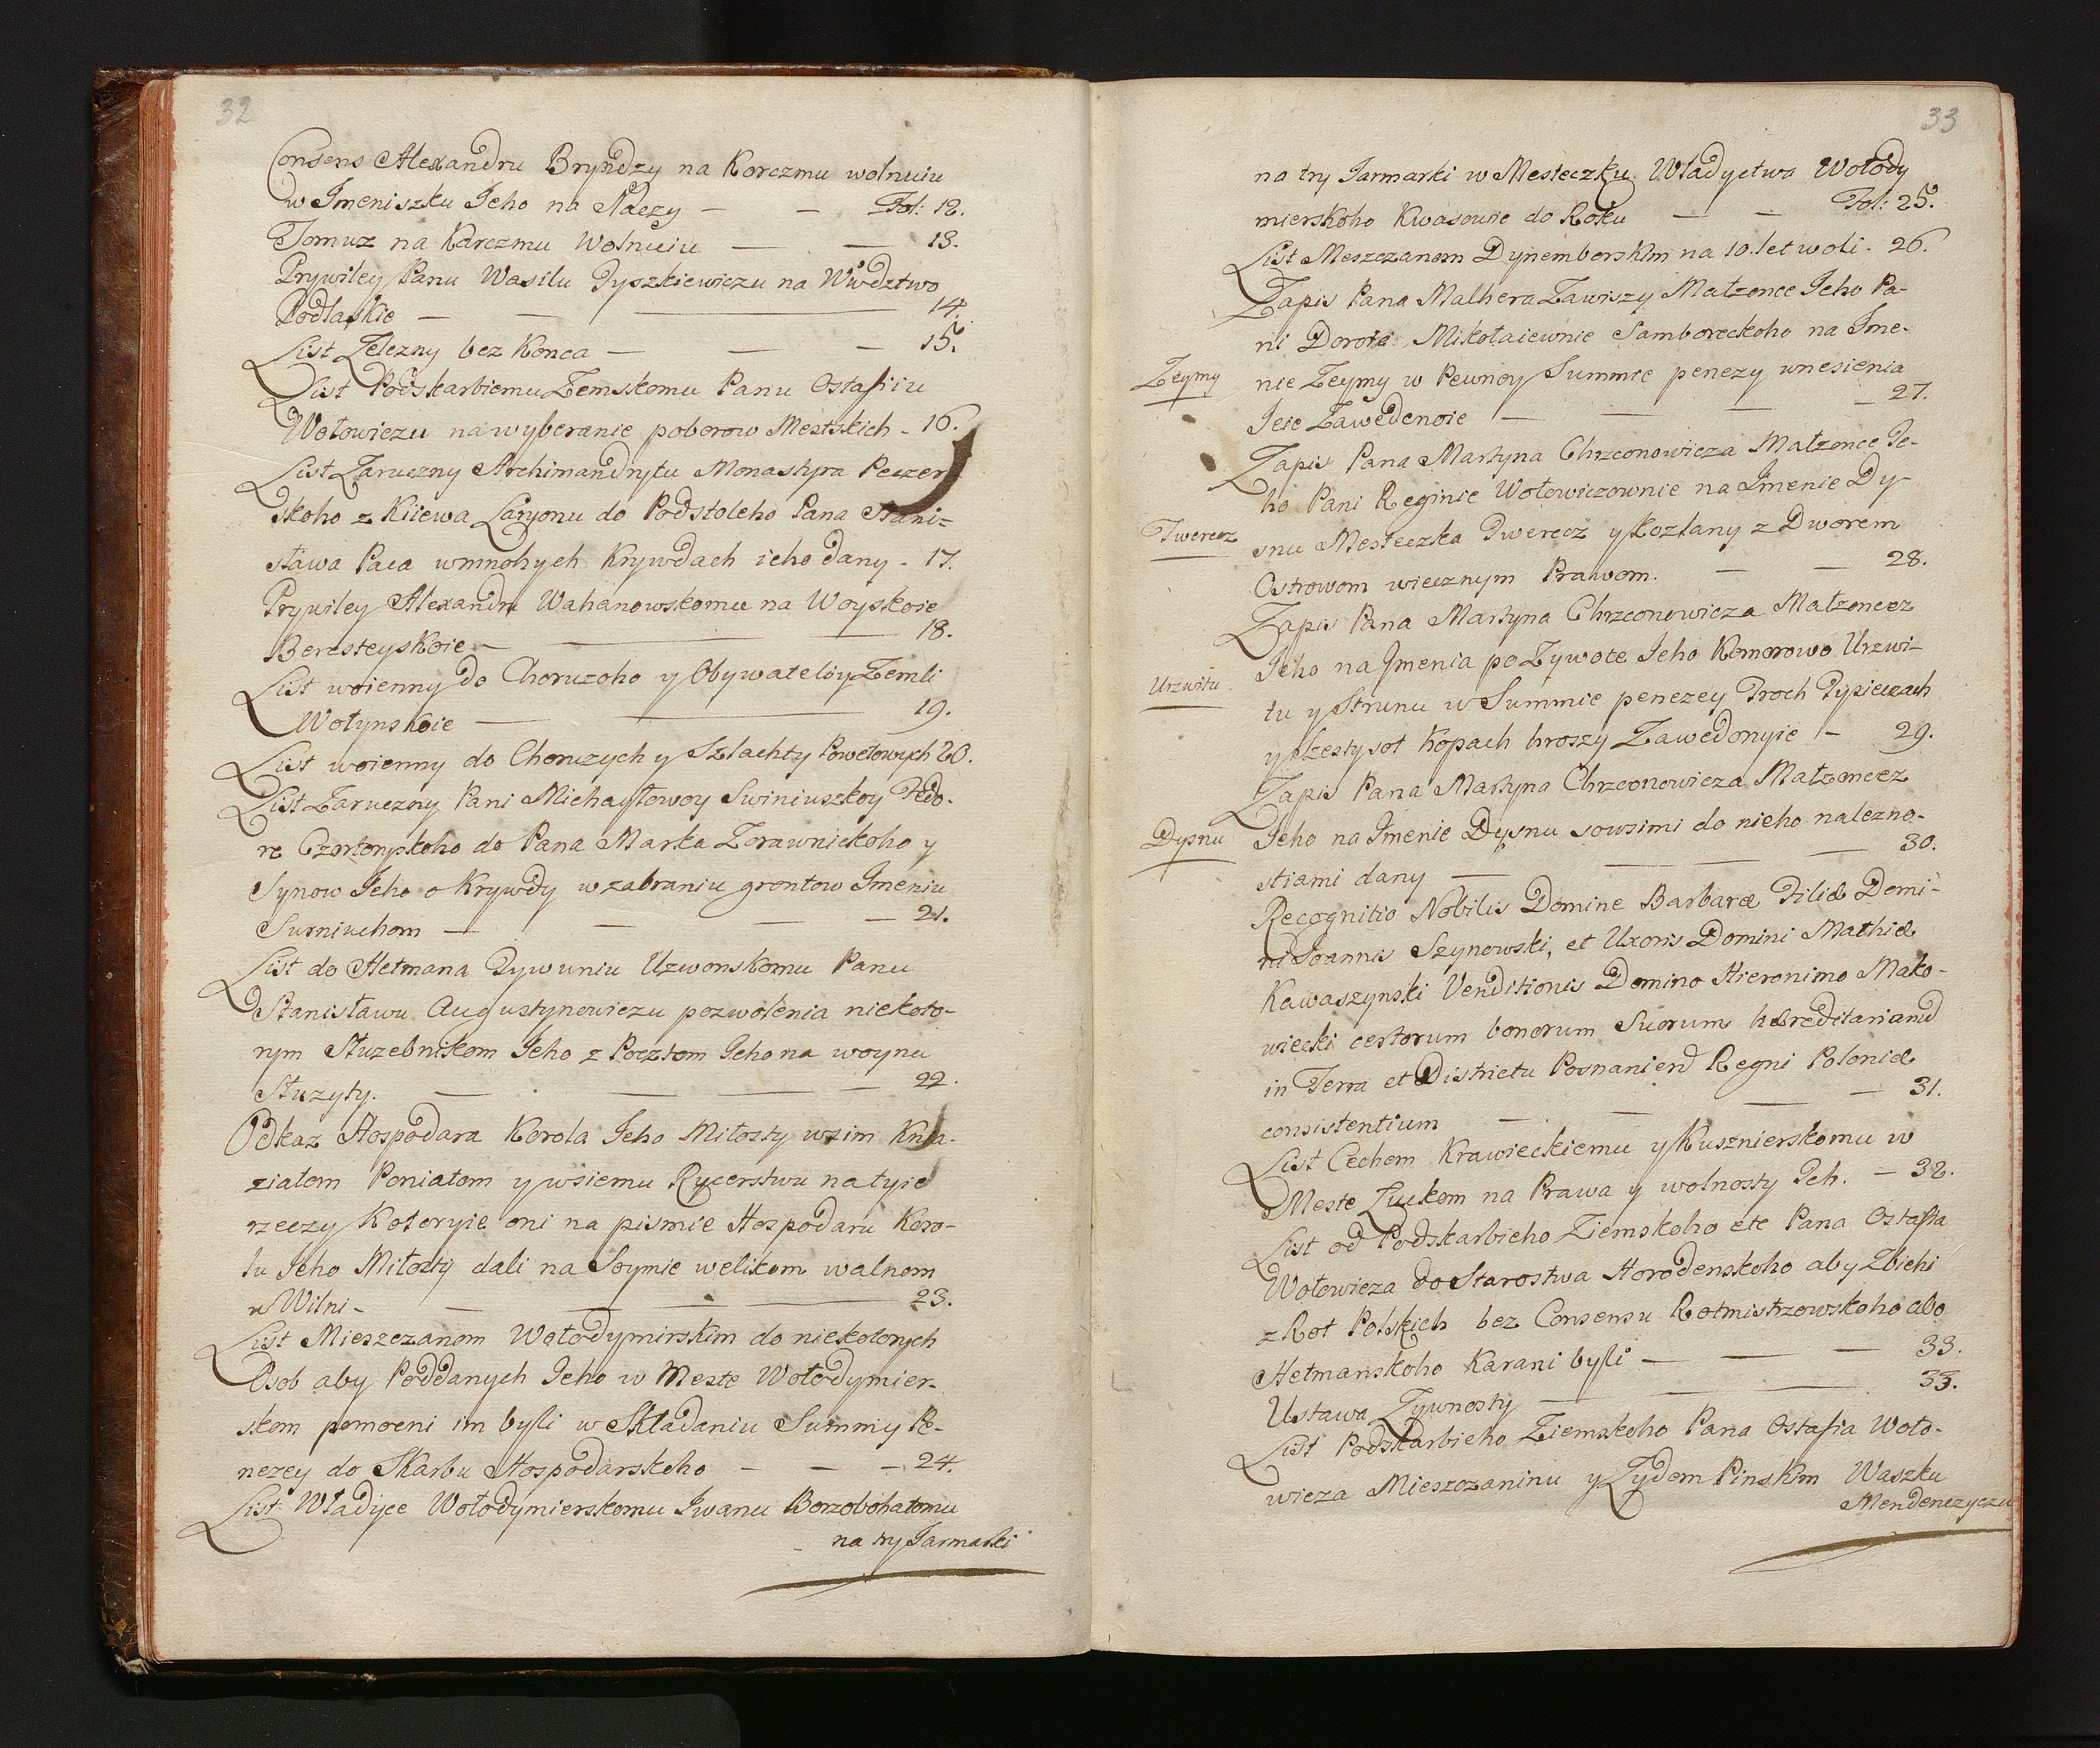 32
Consens Alexandru Bryndzy na Korczmu wolnuiu
w Imeniszku Jeho na Naczy — — Fol: 12.
Tomuz na Karczmu Wolnuiu — — 13.
Prywiley Panu Wasilu Tyszkiewiczu na Wwdztwo
Podlaskie — — — 14.
List Zelezny bez Konca — — — 15.
List Podskarbiemu Zemskomu Panu Ostafiiu
Wołowiczu na wyberanie poborow Mestskich - 16.
List Zaruczny Archimandrytu Monastyra Peczer
skoho z Kiiewa Laryonu do Podstoleho Pana Stani=
sława Paca wmnohych Krywdach ieho dany - 17.
Prywiley Alexandru Wahanowskomu na Woyskoie
Beresteyskoie — — 18.
List woienny do Choruzoho y Obywateliy Zemli
Wołynskoie — — 19.
List woienny do Choruzych y Szlachty Powetowych 20.
List Zaruczny Pani Michayłowoy Swiniuszkoy Fedo-
re Czortoryskoho do Pana Marka Zorawnickoho y
Synow Jeho o Krywdy w zabraniu grontow Imeniu
Surniuchom — — — — 21.
List do Hetmana Tywuniu Uzwonskomu Panu
Stanisławu Augustynowiczu pozwolenia niekoto-
rym Słuzebnikom Jeho z Pocztom Jeho na woynu
Słuzyty. — — — — 22.
Odkaz Hospodara Korola Jeho Miłosty wsim Knia-
ziatom Poniatom y wsiemu Rycerstwu na tyie
rzeczy Kotoryie oni na pismie Hospodaru Koro-
lu Jeho Miłosty dali na Soymie welikom walnom
w Wilni - — — — 23.
List Mieszczanom Wołodymirskim do niekotorych
Osob aby Poddanych Jeho w Meste Wołodymier-
skom pomocni im byli w Składaniu Summy Pe-
nezey do Skarbu Hospodarskoho — — — 24.
List Władyce Wołodymierskomu Iwanu Borzobohatomu
na try Jarmarki
33
na try Jarmarki w Mesteczku Władyctwa Wołody
mierskoho Kwasowie do Roku — — Fol: 25.
List Meszczanom Dynemborskim na 10. let woli. 26.
Zapis Pana Malhera Zawiszy Małzonce Jeho Pa-
ni Dorotie Mikołaiewnie Samboreckoho na Ime-
Zeymy
nie Zeymy w Pewnoy Summie penezy wnesienia
Jeie Zawedenoie — — — 27.
Zapis Pana Martyna Chrzconowicza Małzonce Je-
ho Pani Reginie Wołowiczownie na Imenie Dy-
Twerecz
snu Mesteczka Twerecz y Kozłany z Dworem
Ostrowom wiecznym Prawom. — — 28.
Zapis Pana Martyna Chrzconowicza Małzoncez
Jeho na Imenia po Zywote Jeho Komorowo Urzwi-
Urzwitu
tu y Strunu w Summie penezey Troch Tysieczach
y szesty sot Kopach hroszy Zawedonyie — 29.
Zapis Pana Martyna Chrzconowicza Małzoncez
Dysnu
Jeho na Imenie Dysnu sowsimi do nieho nalezno-
stiami dany — — — — 30.
Recognitio Nobilis Domine Barbaræ Filiæ Domi-
ni Joannis Szynowski, et Uxoris Domini Mathiæ
Kawaszynski Venditionis Domino Hieronimo Mako-
wiecki certorum bonorum Suorum hæreditariarum
in Terra et Districtu Posnanien Regni Poloniæ
consistentium — — — — 31.
List Cechom Krawieckiemu y Kusznierskomu w
Meste Łuckom na Prawa y wolnosty Ich. — 32.
List od Podskarbieho Ziemskoho etc Pana Ostafia
Wołowicza do Starostwa Horodenskoho aby Zbiehi
z Rot Polskich bez Consensu Rotmistrzowskoho abo
Hetmanskoho Karani byli — — — 33.
Ustawa Zywnosty — — — 33.
List Podskarbieho Ziemskoho Pana Ostafia Woło-
wicza Mieszczaninu y Zydom Pinskim Waszku
Mendenczyczu